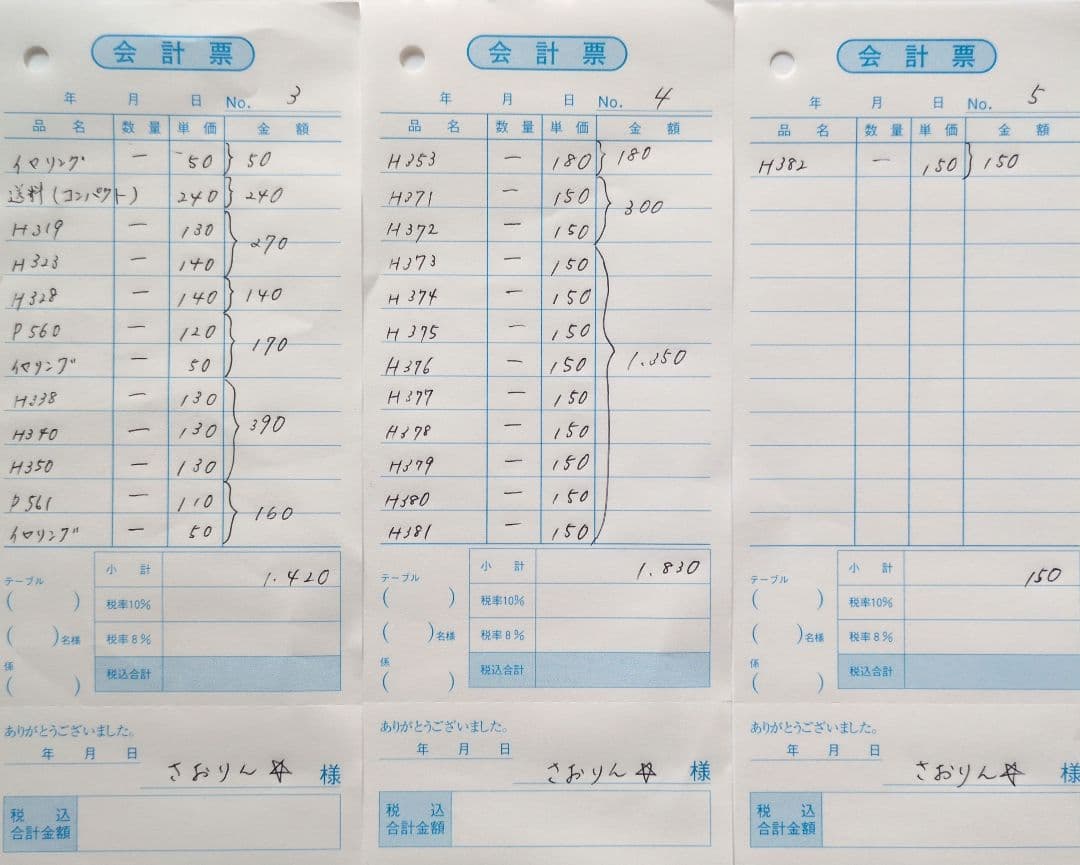 会計票
年 月 日 No. 3
品名 数量 単価 金額
イヤリング 一 50 50
送料(コンパクト) 240 240
H319 一 130
270
H323 一 140
H328 一 140 140
P560 一 120
170
イヤリング 一 50
H338 一 130
H340 一 130 390
H350 一 130
P561 一 110
160
イヤリング 一 50
小計 1.420
テーブル
( ) 税率10%
( )名様 税率8%
係
( ) 税込合計
ありがとうございました。
年 月 日
さおりん☆ 様
税込
合計金額
会計票
年 月 日 No. 4
品名 数量 単価 金額
H353 一 180 180
H371 一 150
300
H372 一 150
H373 一 150
H374 一 150
H375 一 150
H376 一 150 1.350
H377 一 150
H378 一 150
H379 一 150
H380 一 150
H381 一 150
小計 1.830
テーブル
( ) 税率10%
( )名様 税率8%
係
( ) 税込合計
ありがとうございました。
年 月 日
さおりん☆ 様
税込
合計金額
会計票
年 月 日 No. 5
品名 数量 単価 金額
H382 一 150 150
小計 150
テーブル
( ) 税率10%
( )名様 税率8%
係
( ) 税込合計
ありがとうございました。
年 月 日
さおりん☆ 様
税込
合計金額